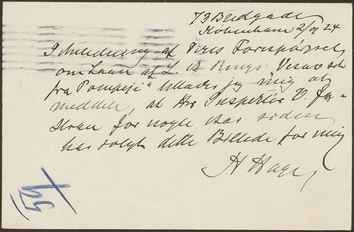 73 Bredgade
København 2/9 24
I Anledning af Deres Forespørgsel
om Laan af L. A. Rings
fra Pompeji" tillader jeg mig at
meddele, at Hr. Inspektør V.
for nogle Aar siden
har solgt dette Billede for mig
H Hage